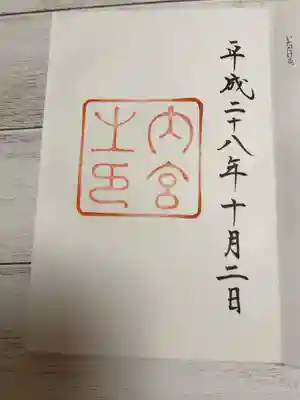 平成二十八年十月二日
内宮
之印